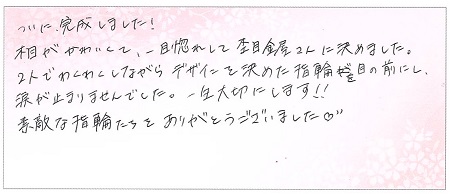 ついに、完成しました!
木目がかわいくて、一目惚れして杢目金屋さんに決めました。
2人でわくわくしながらデザインを決めた指輪を目の前にし、
涙が止まりませんでした。一生大切にします!!
素敵な指輪たちをありがとうございました♡"